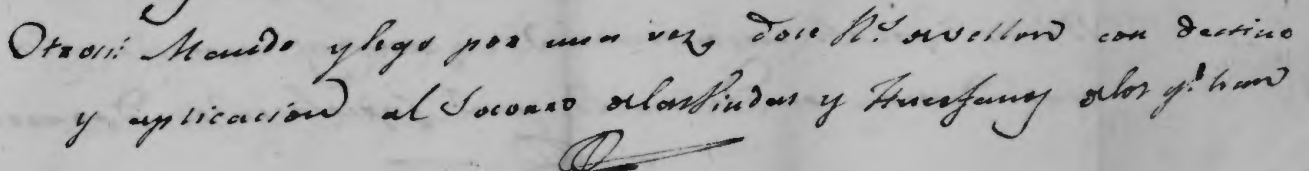 Otrosi: Mando y lego por una vez, doce R.s de vellon con destino
y aplicacion al Socorro de las Viudas y Huerfanos de los q.e han